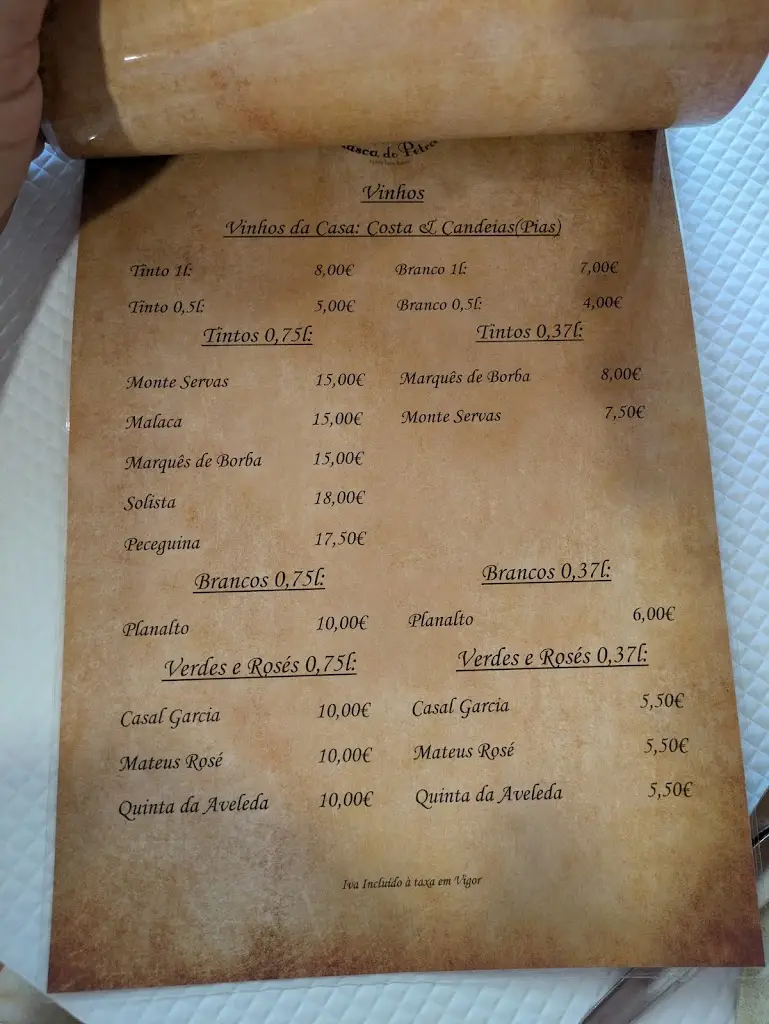 do Petro
Vinhos
Vinhos da Casa: Costa & Candeias(Pias)
Tinto 1l: 8,00€ Branco 1l: 7,00€
Tinto 0,5l: 5,00€ Branco 0,5l: 4,00€
Tintos 0,75l: Tintos 0,37l:
Monte Servas 15,00€ Marquês de Borba 8,00€
Malaca 15,00€ Monte Servas 7,50€
Marquês de Borba 15,00€
Solista 18,00€
Peceguina 17,50€
Brancos 0,75l: Brancos 0,37l:
Planalto 10,00€ Planalto 6,00€
Verdes e Rosés 0,75l: Verdes e Rosés 0,37l:
Casal Garcia 10,00€ Casal Garcia 5,50€
Mateus Rosé 10,00€ Mateus Rosé 5,50€
Quinta da Aveleda 10,00€ Quinta da Aveleda 5,50€
Iva Incluído à taxa em Vigor